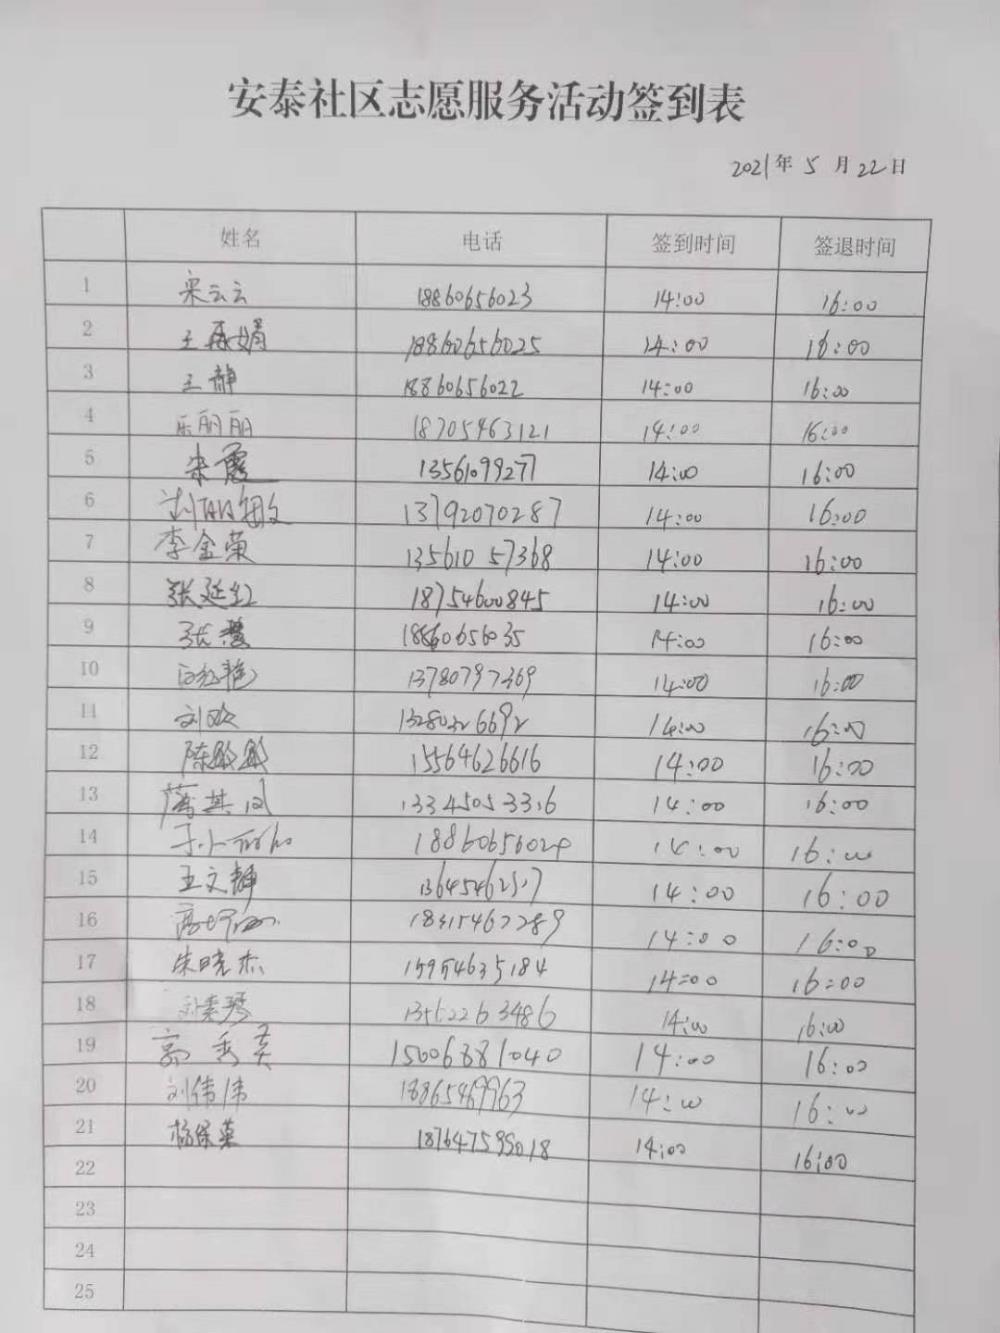 安泰社区志愿服务活动签到表
2021年 5 月 22 日
姓名 电话 签到时间 签退时间
1 宋云云 18860656023 14:00 16:00
2 王再娟 18860656025 14:00 16:00
3 王静 18860656022 14:00 16:00
4 乐丽丽 18705463121 14:00 16:00
5 朱霞 13561099277 14:00 16:00
6 13792070287 14:00 16:00
7 李金荣 13561057368 14:00 16:00
8 张延红 18754600845 14:00 16:00
9 张慧 18860656035 14:00 16:00
10 13780797369 14:00 16:00
11 刘欢 14:00 16:00
12 陈 15564626616 14:00 16:00
13 13345053316 14:00 16:00
14 18860656024 14:00 16:00
15 王文静 14:00 16:00
16 18315462289 14:00 16:00
17 朱晓杰 15954635184 14:00 16:00
18 刘素琴 13562263486 14:00 16:00
19 郭秀英 15006881040 14:00 16:00
20 刘伟伟 18865469963 14:00 16:00
21 杨保英 14:00 16:00
22
23
24
25